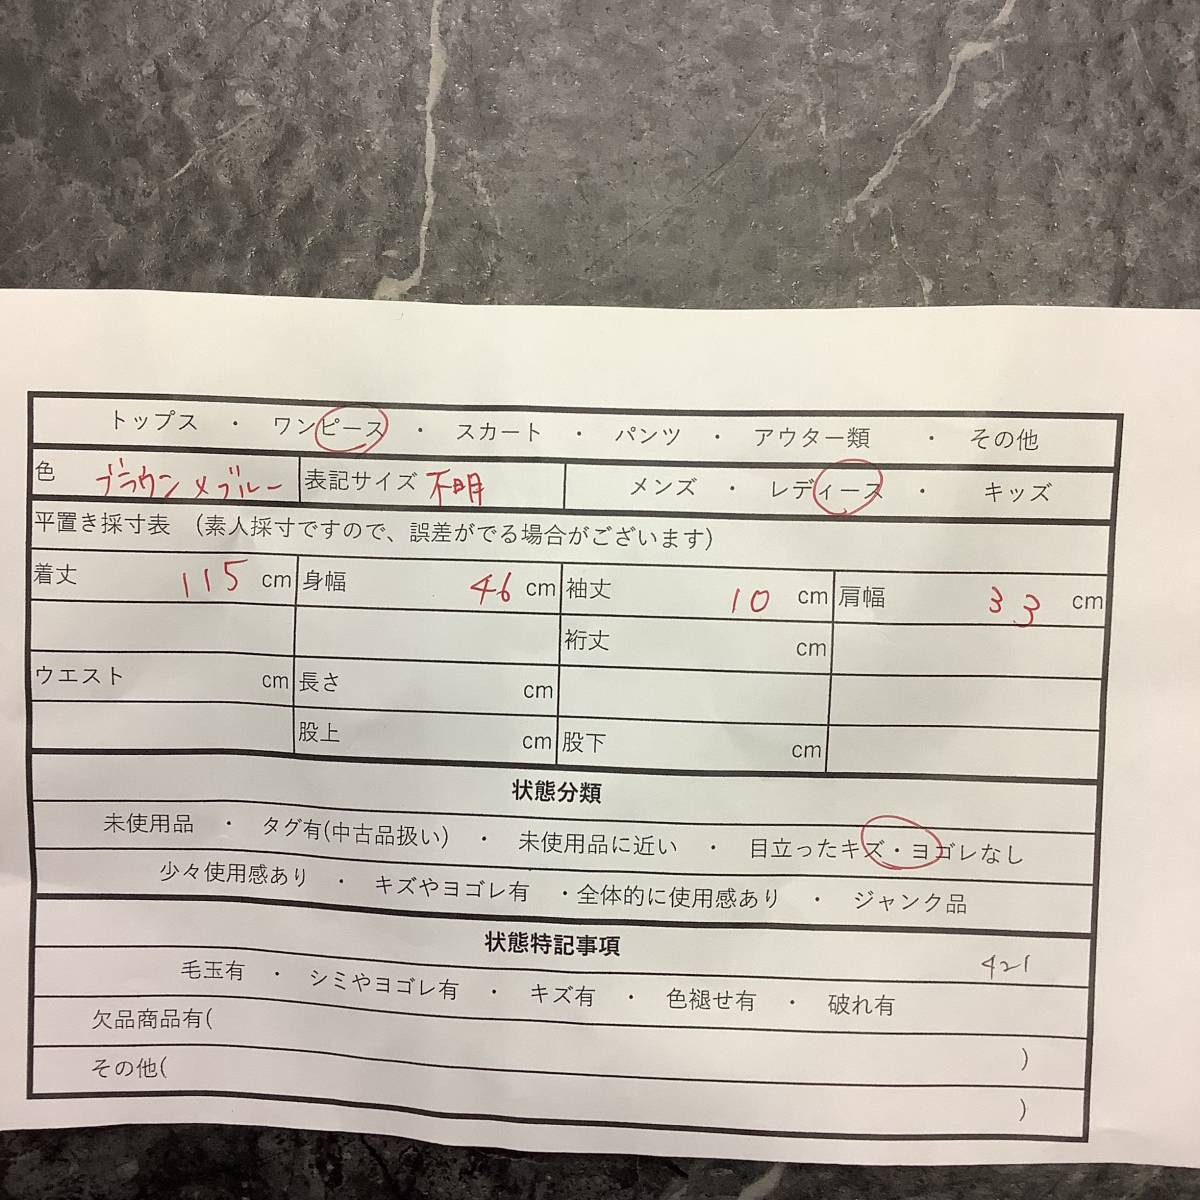 トップス ・ ワンピース ・ スカート ・ パンツ ・ アウター類 ・ その他
色 ブラウン×ブルー 表記サイズ 不明 メンズ ・ レディース ・ キッズ
平置き採寸表 (素人採寸ですので、誤差がでる場合がございます)
着丈 115 cm 身幅 46 cm 袖丈 10 cm 肩幅 33 cm
裄丈 cm
ウエスト cm 長さ cm
股上 cm 股下 cm
状態分類
未使用品 ・ タグ有(中古品扱い) ・ 未使用品に近い ・ 目立ったキズ・ヨゴレなし
少々使用感あり ・ キズやヨゴレ有 ・全体的に使用感あり ・ ジャンク品
状態特記事項
421
毛玉有 ・ シミやヨゴレ有 ・ キズ有 ・ 色褪せ有 ・ 破れ有
欠品商品有( )
その他( )